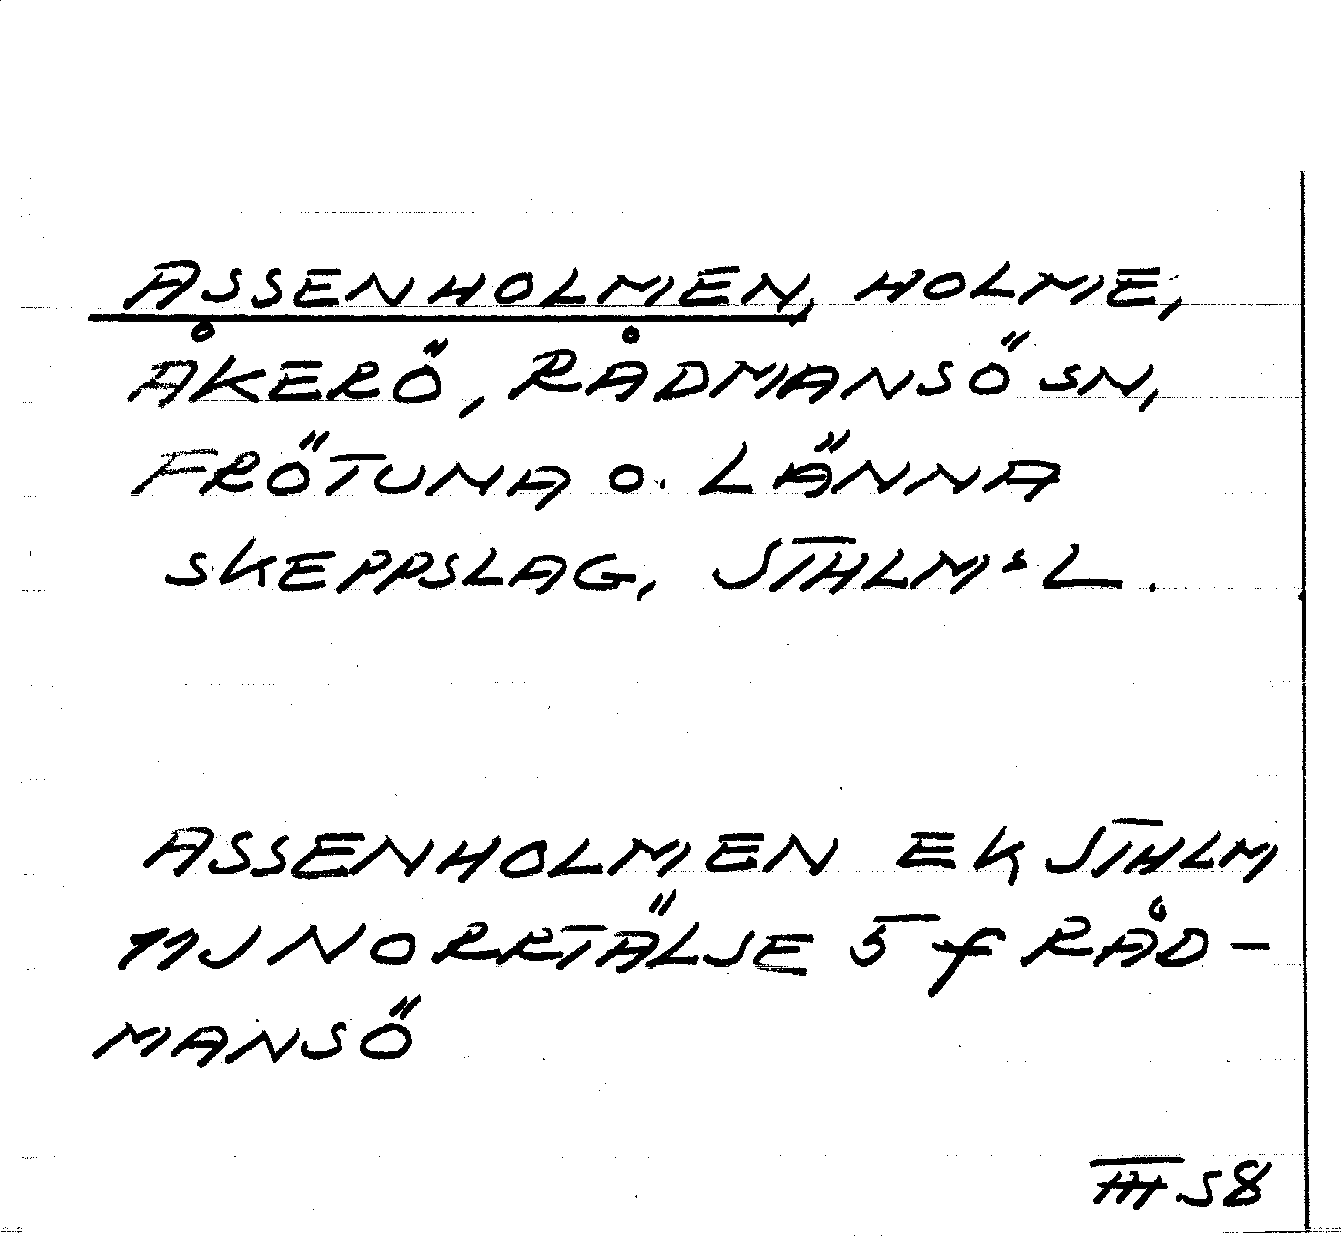 ASSENHOLMEN, HOLME,
ÅKERÖ, RÅDMANSÖ SN,
FRÖTUNA O. LÄNNA
SKEPPSLAG, STHLMS L.
ASSENHOLMEN EK STHLM
11J NORRTÄLJE 5 f RÅD-
MANSÖ
III S8